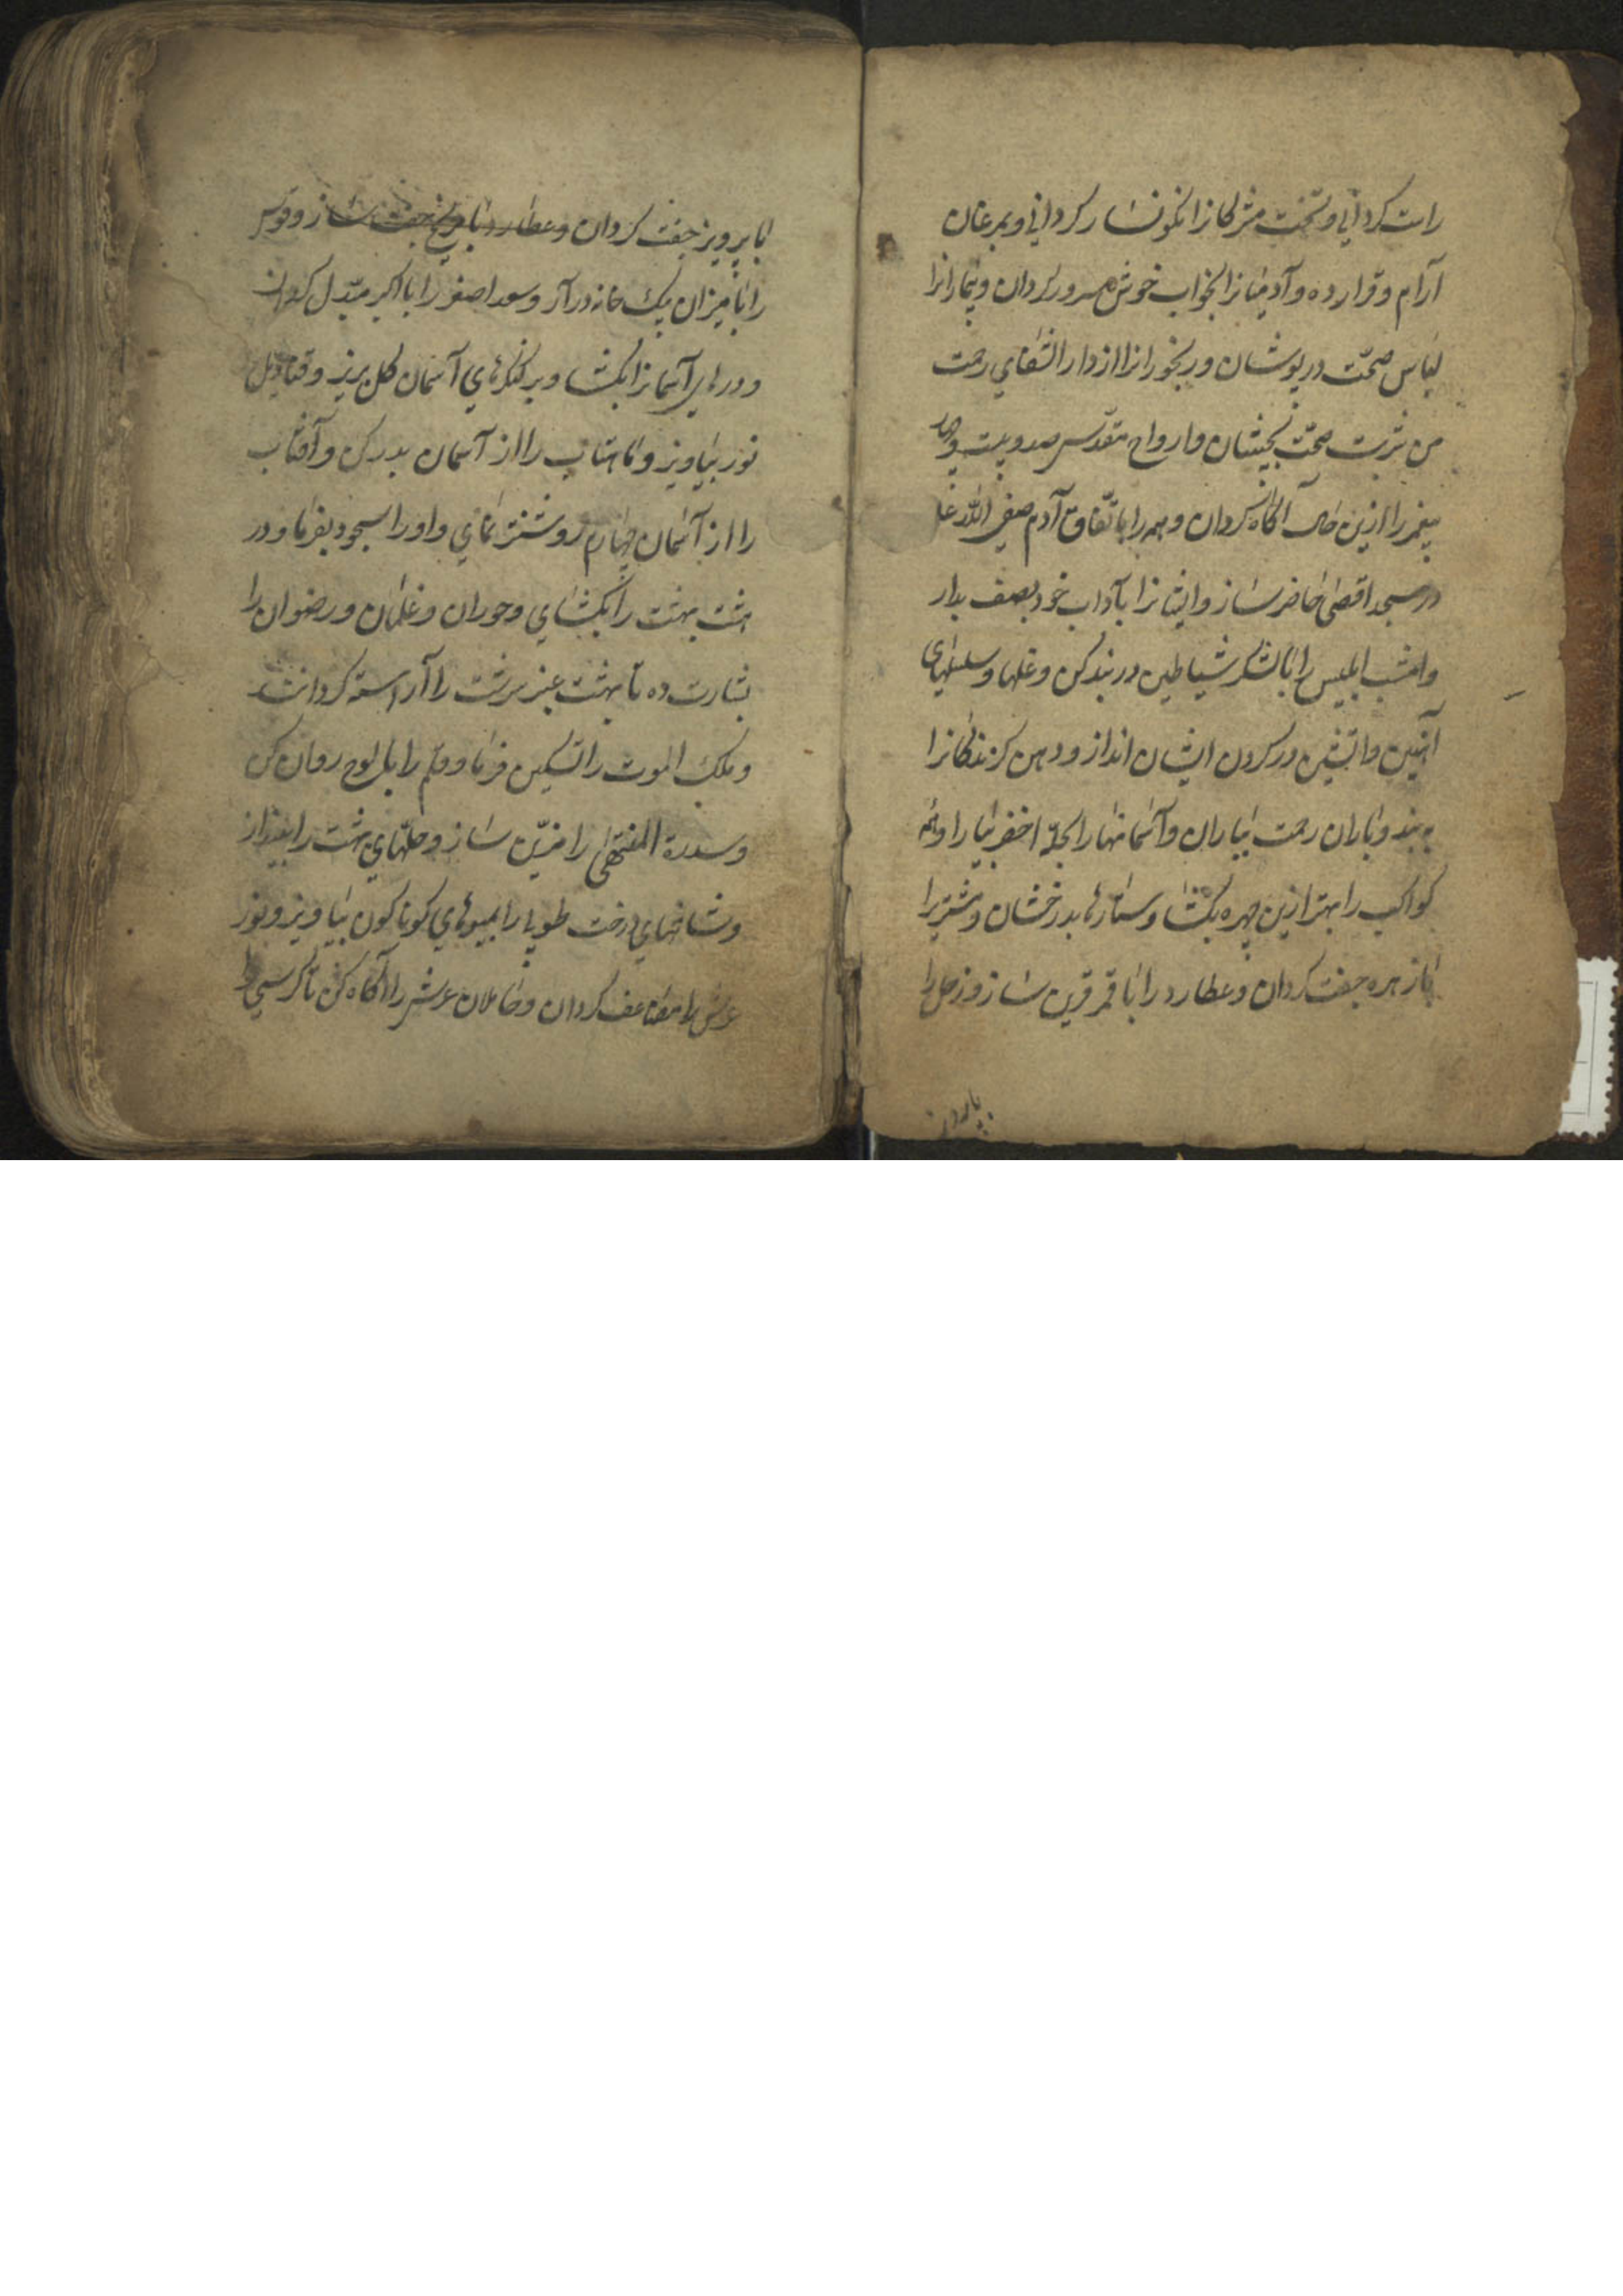 راست کردانی و تخت مشرکانرا نکونسار کردانی و بمرغان
آرام و قرار ده و آدمیانرا بخواب خوش مسرور کردان و بیمارانرا
لباس صحت در پوشان و رنجورانرا از دار الشفای رحمت
من شربت صحت بچشان و ارواح مقدس صد و بیست و چهار
پیغمبر را ازین حال آگاه کردان و همه را باتفاق آدم صفی الله علیه
در مسجد اقصی حاضر ساز و ایشانرا بآداب خود بصف بدار
و امشب ابلیس را با لشکر شیاطین در بند کن و غلها و سلسلهای
آتشین در کردن ایشان انداز و دهن کزندکانرا
به بند و باران رحمت بباران و آسمانها را بحلّه اخضر بیارا و همه
کواکب را بهتر ازین چهره بکشا و ستارها بدرخشان و مشتریرا
با زهره جفت کردان و عطارد را با قمر قرین ساز و زحل را
با پروین
با پرویز جفت کردان و عطارد را با مریخ جفت ساز و قوس
را با میزان بیک خانه در آر و سعد اصغر را با اکبر مبدّل کردان
و درهای آسمانرا بکشا و بر کنکرهای آسمان کل بریز و قنادیل
نور بیاویز و ماهتاب را از آسمان بدر کن و آفتاب
را از آسمان چهارم روشنتر نمای و او را سجود بفرما و در
هشت بهشت را بکشای و حوران و غلمان و رضوان را
بشارت ده تا بهشت عنبر سرشت را آراسته کردانند
و ملک الموت را تسکین فرما و قلم را بل لوح روان کن
و سدرة المنتهی را مزیّن ساز و حلهای بهشت را بیفزاز
و شاخهای درخت طوبا را بمیوهای کوناکون بیاویز و نور
عرش را مضاعف کردان و حاملان عرش را آگاه کن تا کرسی را